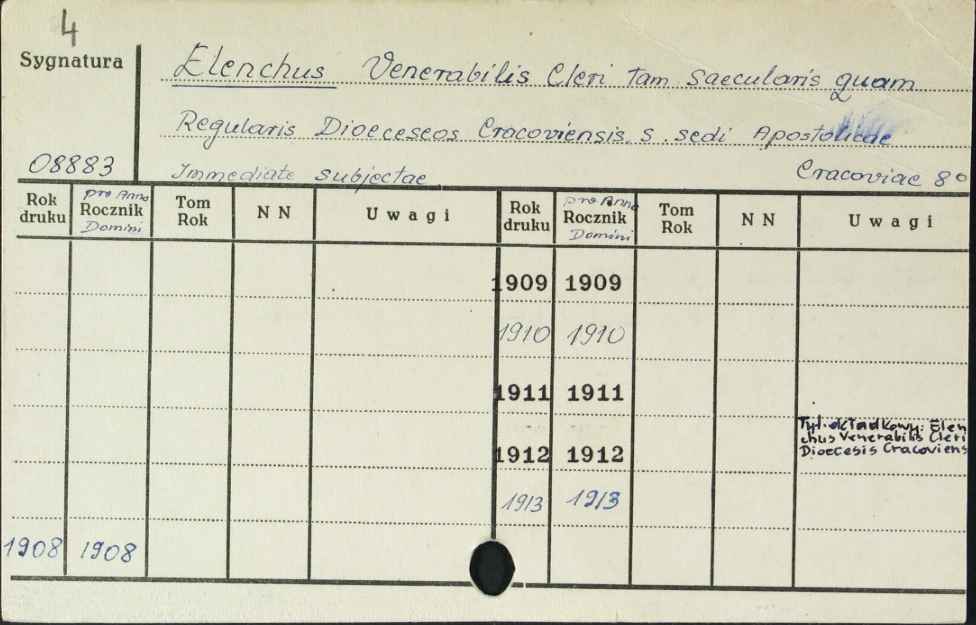 4
Sygnatura
Elenchus Venerabilis Cleri tam saecularis quam
Regularis Dioeceseos Cracoviensis s. sedi Apostolicae
08883 Immediate subjectae Cracoviae 8°
Rok druku pro Anno Rocznik Domini Tom Rok N N Uwagi Rok druku pro Anno Rocznik Domini Tom Rok N N Uwagi
1909 1909
1910 1910
1911 1911
Tyt. okładkowy: Elen
chus Venerabilis Cleri
1912 1912 Dioecesis Cracoviens
1913 1913
1908 1908